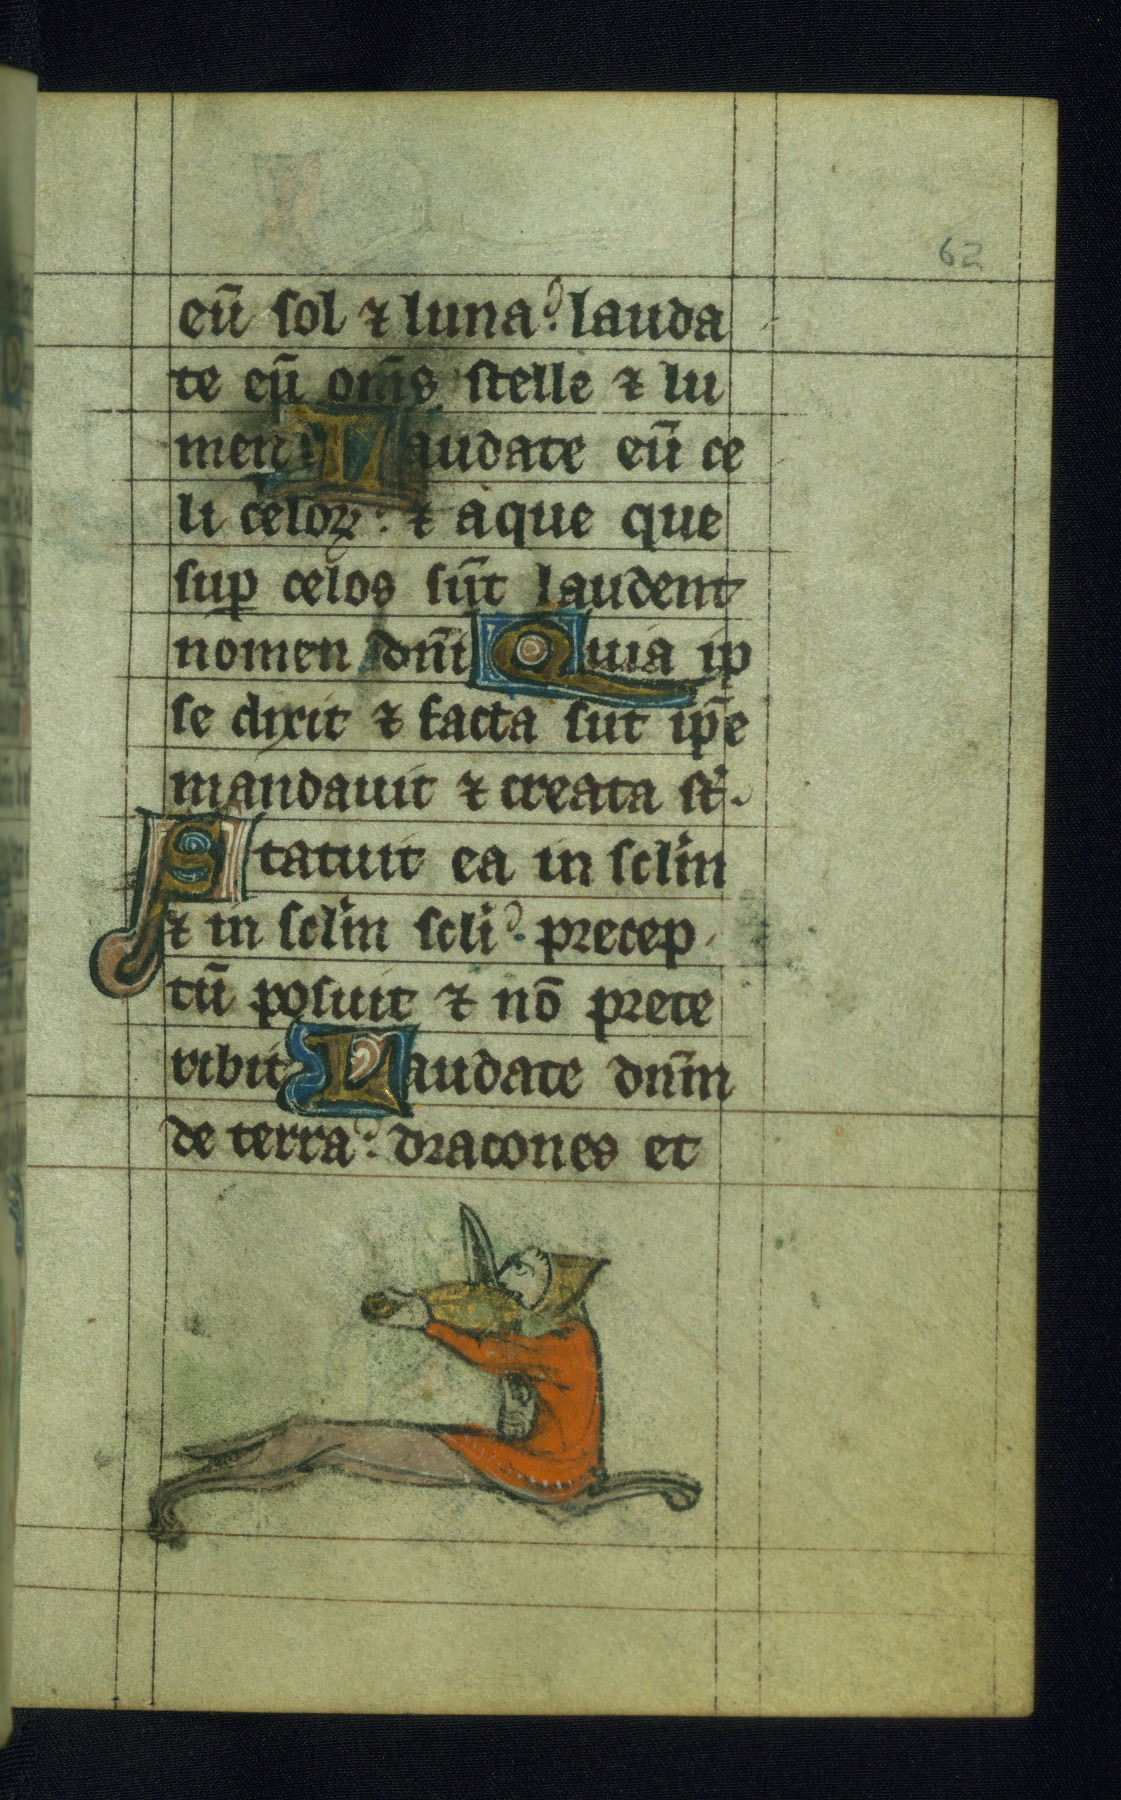 62
eū sol ⁊ luna: lauda
te eū om̄s stelle ⁊ lu
men Laudate eū ce
li celoꝝ: ⁊ aque que
suꝑ celos sūt laudent
nomen dn̄i Quia ip
se dixit ⁊ facta sūt ip̄e
mandauit ⁊ creata st̄.
Statuit ea in sc̄lm
⁊ in sc̄lm sc̄li: precep
tū posuit ⁊ nō prete
ribit Laudate dn̄m
de terra: dracones et